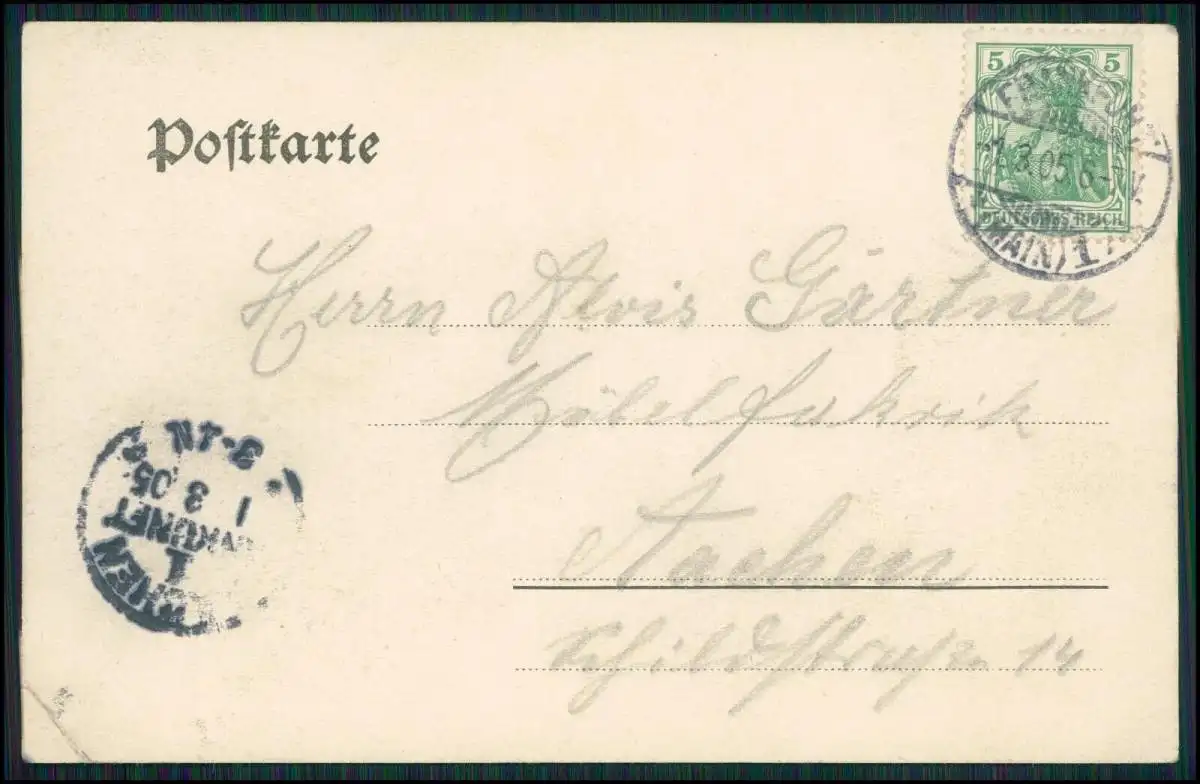 Postkarte
5 5
FRANKFURT
1.3.05 6-7V.
DEUTSCHES REICH
(MAIN) 1
Herrn Alois Gärtner
Möbelfabrik
Aachen
Schildstraße 14
3-4N
1 3 05
ANKUNFT
1